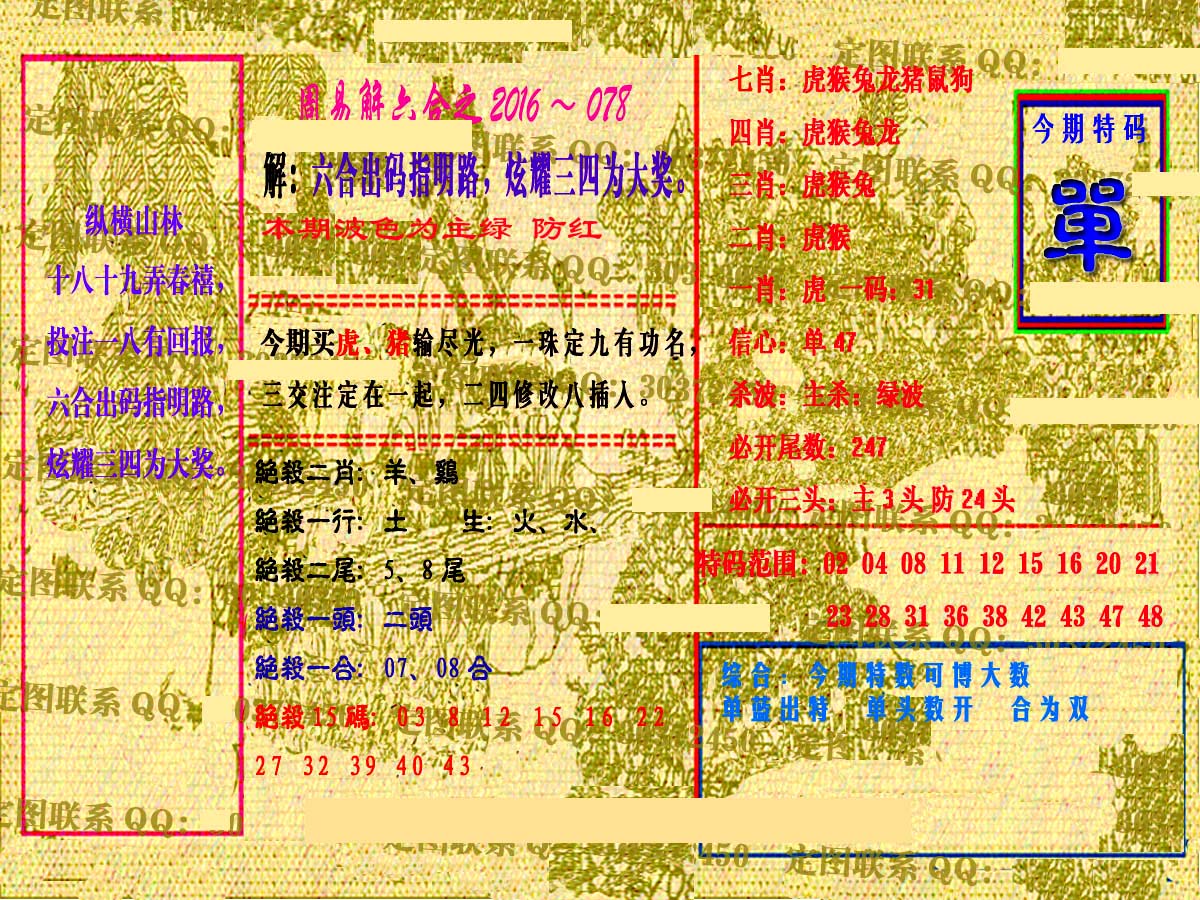 周易解六合之2016～078
解：六合出码指明路，炫耀三四为大奖。
本期波色为主绿 防红
纵横山林
十八十九弄春禧，
投注一八有回报，
六合出码指明路，
炫耀三四为大奖。
今期买虎、猪输尽光，一珠定九有功名，
三交注定在一起，二四修改八插人。
絕殺二肖：羊、鷄
絕殺一行：土 生：火、水、
絕殺二尾：5、8尾
絕殺一頭：二頭
絕殺一合：07、08合
絕殺15碼：03 8 12 15 16 22
27 32 39 40 43
七肖：虎猴兔龙猪鼠狗
四肖：虎猴兔龙
三肖：虎猴兔
二肖：虎猴
一肖：虎 一码：31
信心：单47
杀波：主杀：绿波
必开尾数：247
必开三头：主3头防24头
今期特码
單
特码范围：02 04 08 11 12 15 16 20 21
23 28 31 36 38 42 43 47 48
综合：今期特数可博大数
单蓝出特，单头数开 合为双
定图联系QQ：